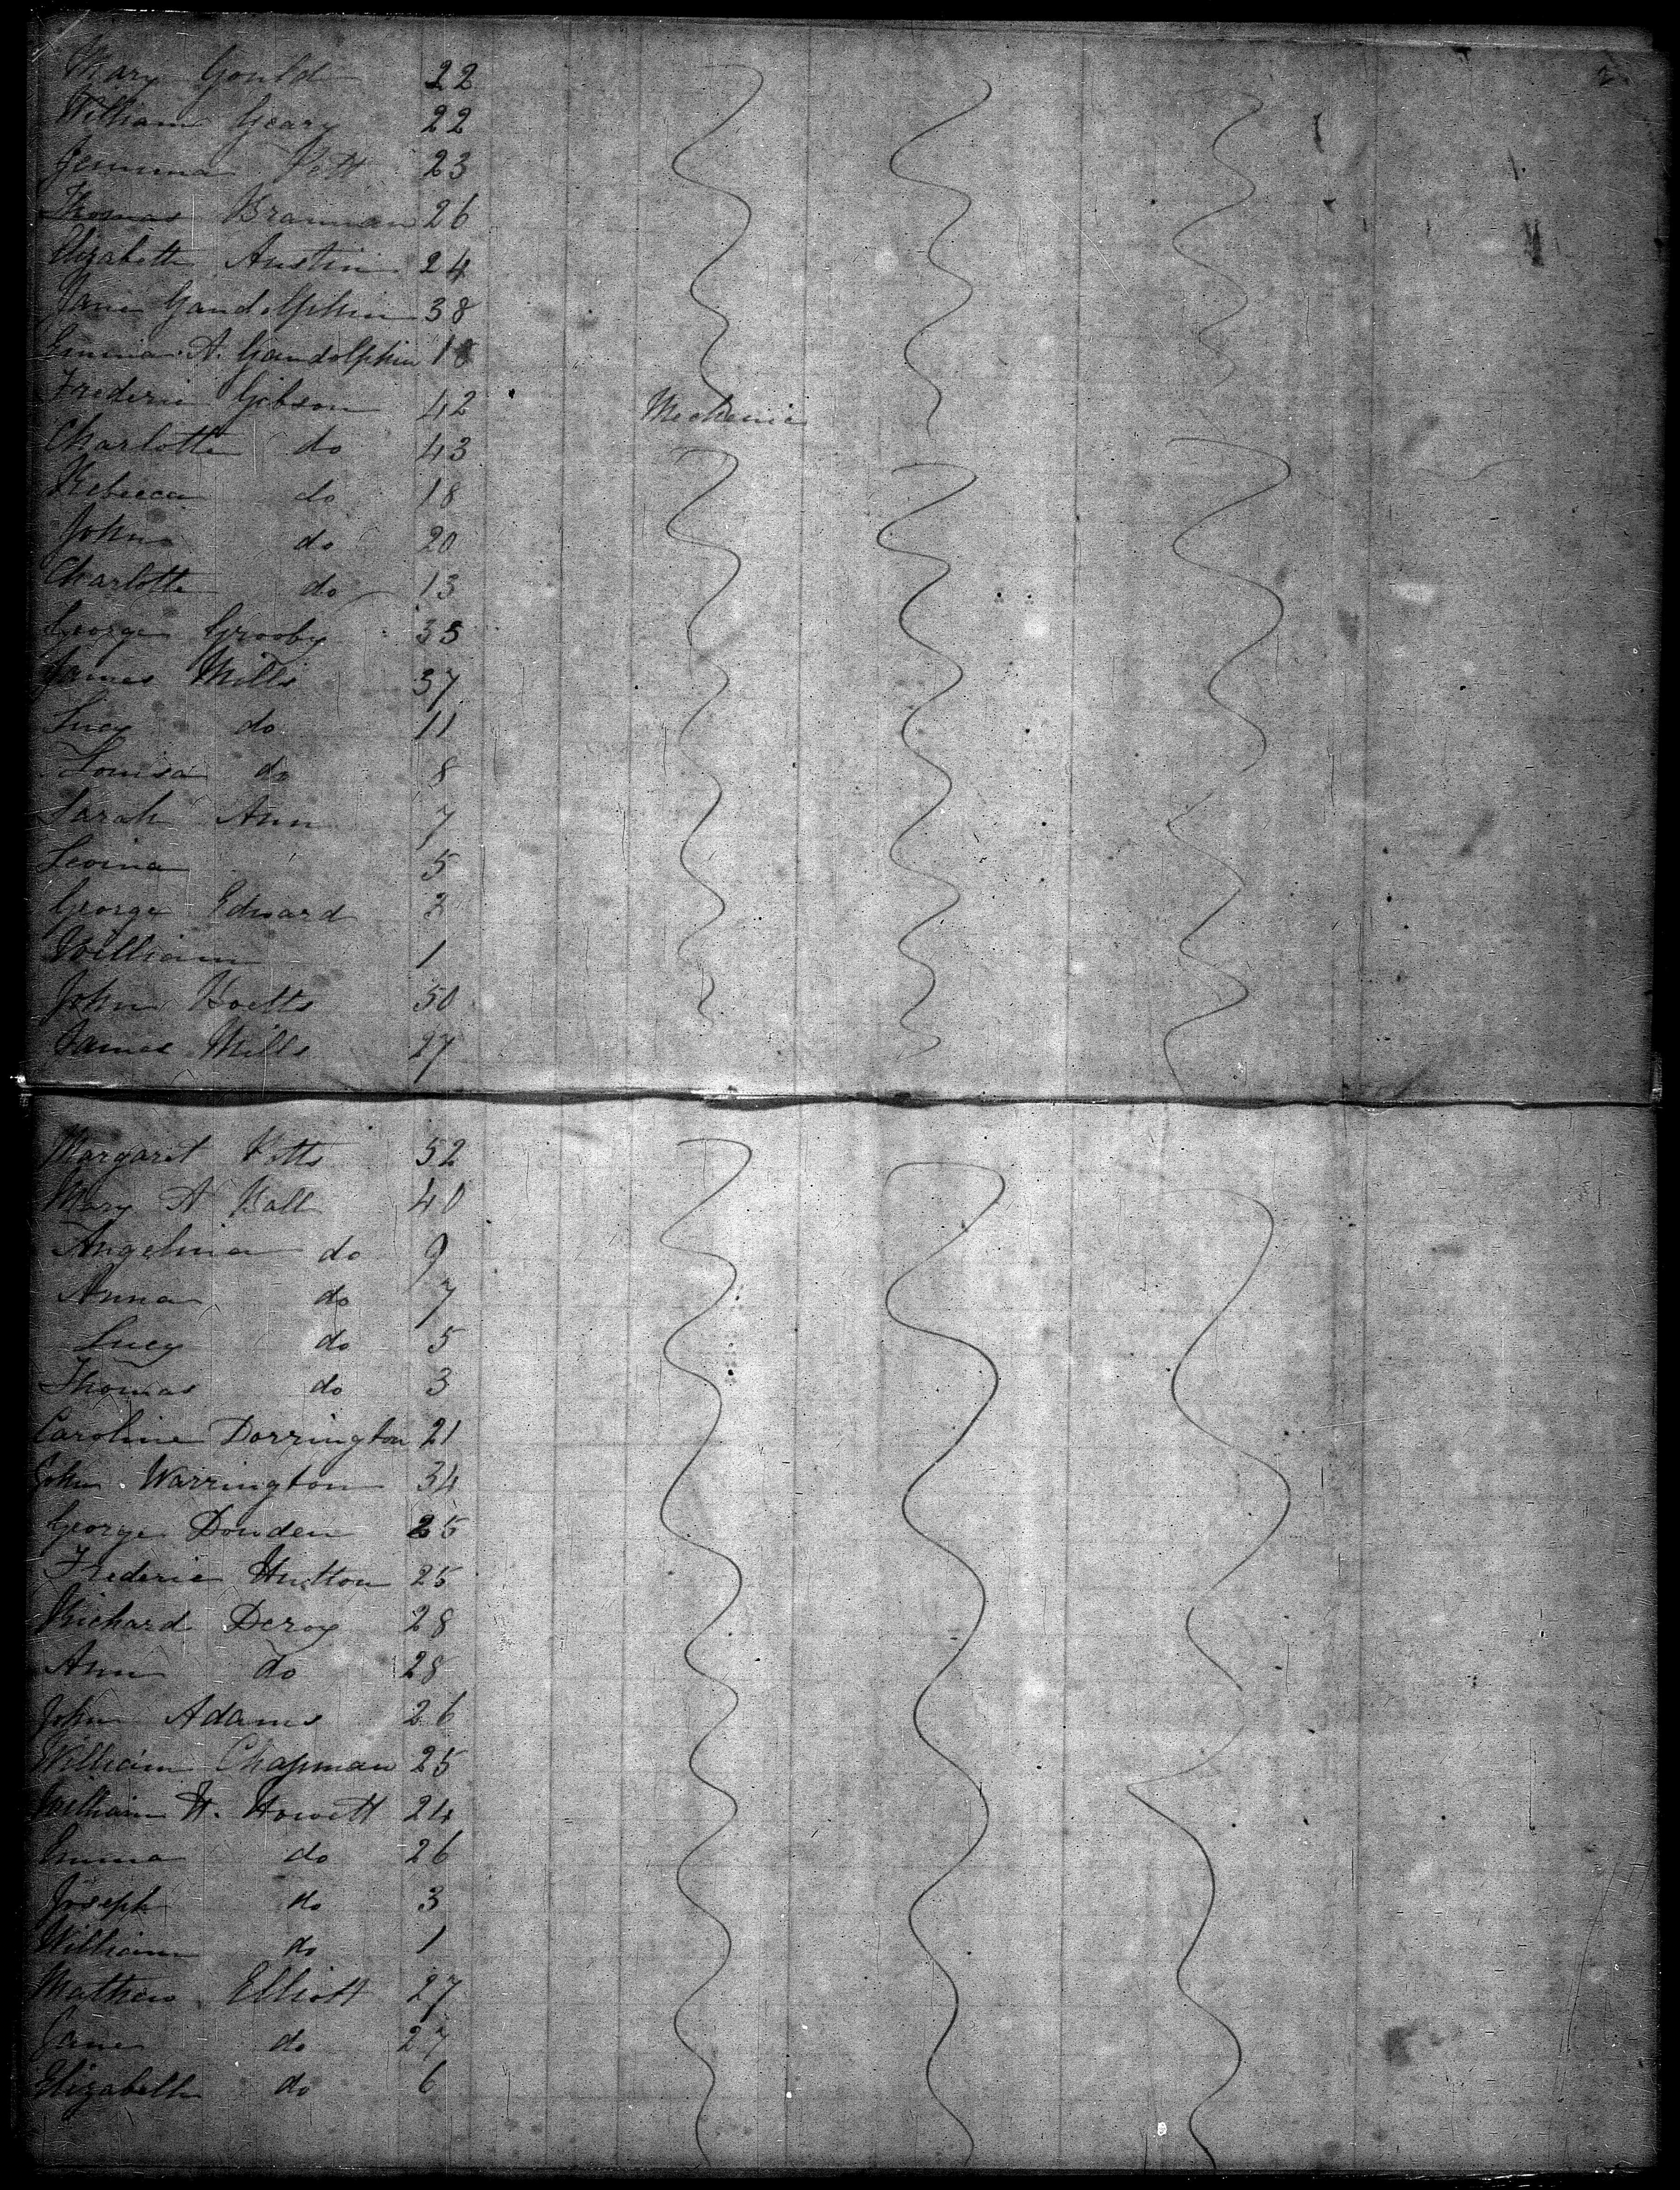 2
Mary Gould 22
William Geary 22
Jemima Pott 23
Thomas Braman 26
Elizabeth Austin 24
Jane Gandolphin 38
Emma A. Gandolphin 18
Frederic Gibson 42 Mechanic
Charlotte do 43
Rebecca do 18
John do 20
Charlotte do 13
George Grooby 35
James Mills 37
Lucy do 11
Louisa do 8
Sarah Ann 7
Levina 5
George Edward 2
William 1
John 50
James Mills 27
Margaret Potts 52
Mary A Ball 40
Angelina do 9
Anna do 7
Lucy do 5
Thomas do 3
Caroline Dorrington 21
John Warrington 34
George Douden 25
Frederic Hutton 25
Richard Deroy 28
Ann do 28
John Adams 26
William Chapman 25
William H. Howett 24
Emma do 26
Joseph do 3
William do 1
Mathew Elliott 27
Jane do 27
Elizabeth do 6